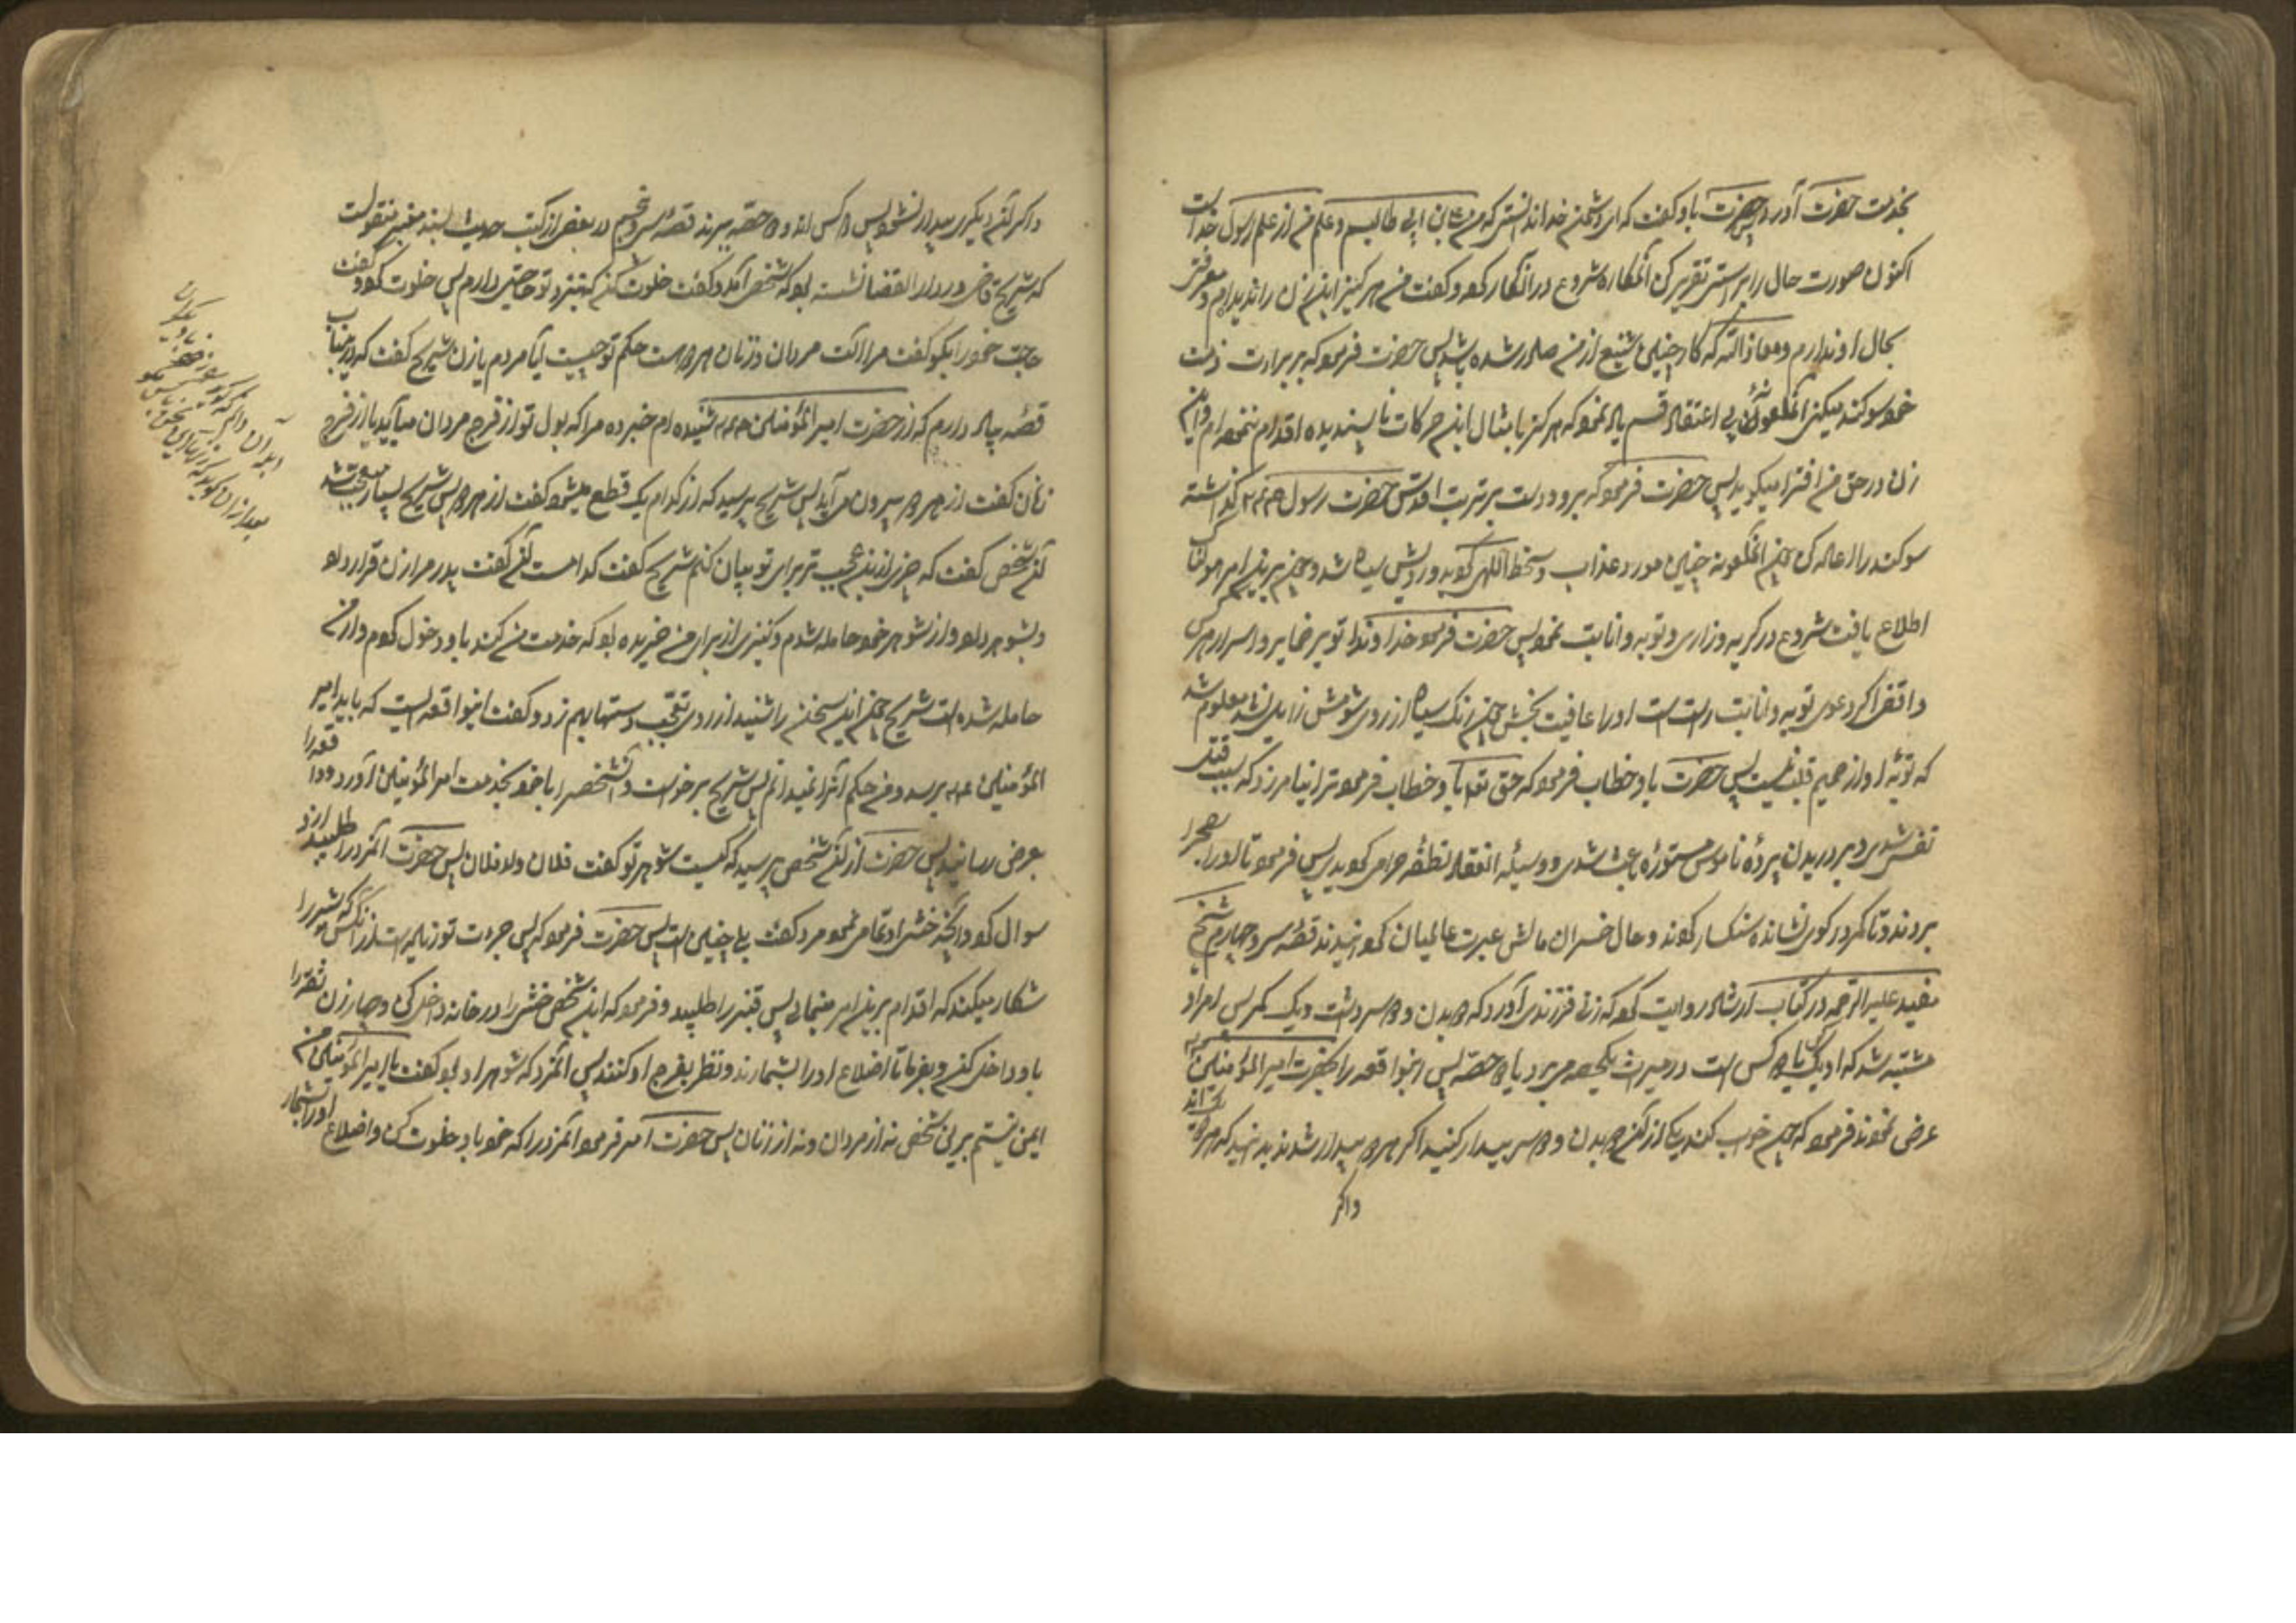 بخدمت حضرت آورد پس حضرت باو گفت که ای دشمن خدا ندانستی که من علی بن ابی طالبم و علم من از علم رسول خداست
اکنون صورت حال را براستی تقریر کن آنمکاره شروع در انکار کرد و گفت من هرگز این زن را ندیده‌ام و معرفتی
بحال او ندارم و معاذ الله که کار چنین شنیع از من صادر شده باشد پس حضرت فرمود که بر برائت ذمت
خود سوگند میکنی آنملعونه بی اعتقاد قسم یاد نمود که هرگز بامثال این حرکات ناپسندیده اقدام ننموده‌ام و این
زن در حق من افترا میگوید پس حضرت فرمود که برو و دست بر تربت اقدس حضرت رسول گذاشته
سوگند را اعاده کن چون آنملعونه چنین کرد مورد عذاب و سخط الهی گردید و رویش سیاه شد و چون برین امر هولناک
اطلاع یافت شروع در گریه و زاری و توبه و انابت نمود پس حضرت فرمود خداوندا تو بر ضمایر و اسرار هر کس
واقفی اگر دعوی توبه و انابت راست است او را عافیت بخش چون رنگ سیاه از روی شومش زایل نشد معلوم شد
که توبه او از صمیم قلب نیست پس حضرت باو خطاب فرمود که حق تعالی ترا نیامرزد که سبب قتل
نفس شدی و بر دریدن پرده ناموس مستوره باعث شدی و وسیله انعقاد نطفه حرامی گردیدی پس فرمود تا او را بصحرا
بردند و تا کمر در گوی نشانده سنگسار کردند و حال خسران مآلش عبرت عالمیان گردانیدند قصه سی و چهارم شیخ
مفید علیه الرحمه در کتاب ارشاد روایت کرده که زنی فرزندی آورد که دو بدن و دو سر داشت و یک کمر پس امر او
مشتبه شد که او یکی یا دو کس است در میراث یکحصه میبرد یا دو حصه پس اینواقعه را بحضرت امیر المؤمنین
عرض نمودند فرمود که چون خواب کند یکی از آن دو بدن و دو سر بیدار کنید اگر هر دو بیدار شدند بدانید که هر دو یک‌اند
و اگر
و اگر آن دیگری بیدار نشود پس دو کس اند و دو حصه میبرند قصه سی و پنجم در بعضی از کتب حدیث بسند معتبر منقولست
که شریح قاضی در دار القضا نشسته بود که شخصی آمد و گفت خلوت کن که بنزد تو حاجتی دارم پس خلوت کرد و گفت
حاجت خود را بگو گفت مرا آلت مردان و زنان هر دو هست حکم تو چیست آیا مردم یا زن شریح گفت که در این باب
قصه بیاد دارم که از حضرت امیر المؤمنین شنیده‌ام خبر ده مرا که بول تو از فرج مردان میآید یا از فرج
زنان گفت از هر دو بیرون می‌آید پس شریح پرسید که از کدام یک قطع میشود گفت از هر دو پس شریح بسیار متعجب شد
آن شخص گفت که چیزی از این عجیب‌تر برای تو بیان کنم شریح گفت کدامست آن گفت پدر مرا زن قرار داد
و بشوهر داد و از شوهر خود حامله شدم و کنیزی از برای من خریده بود که خدمت من کند باو دخول کردم و از من
حامله شده است شریح چون این سخن را شنید از روی تعجب دستها بهم زد و گفت اینواقعه‌ایست که باید بامیر
المؤمنین برسد و من حکم آنرا نمیدانم پس شریح برخواست و آنشخص را با خود بخدمت امیر المؤمنین آورد و واقعه را
بعرض رسانید پس حضرت از آن شخص پرسید که کیست شوهر تو گفت فلان ولد فلان پس حضرت آنمرد را طلبید از او
سوال کرد و آنچه خنثی ادعا می‌نمود مرد گفت بلی چنین است پس حضرت فرمود که پس جرئت تو زیاده است از آنکس که شیر را
شکار میکند که اقدام برین امر مینمائی پس قنبر را طلبید و فرمود که این شخص خنثی را در خانه داخل کن و چهار زن ثقه را
با او داخل کن و بفرما تا اضلاع او را بشمارند و نظر بفرج او کنند پس آنمرد که شوهر او بود گفت یا امیر المؤمنین من
ایمن نیستم برین شخص نه از مردان و نه از زنان پس حضرت امر فرمود آنمرد را که خود با او خلوت کن و اضلاع او را بشمار